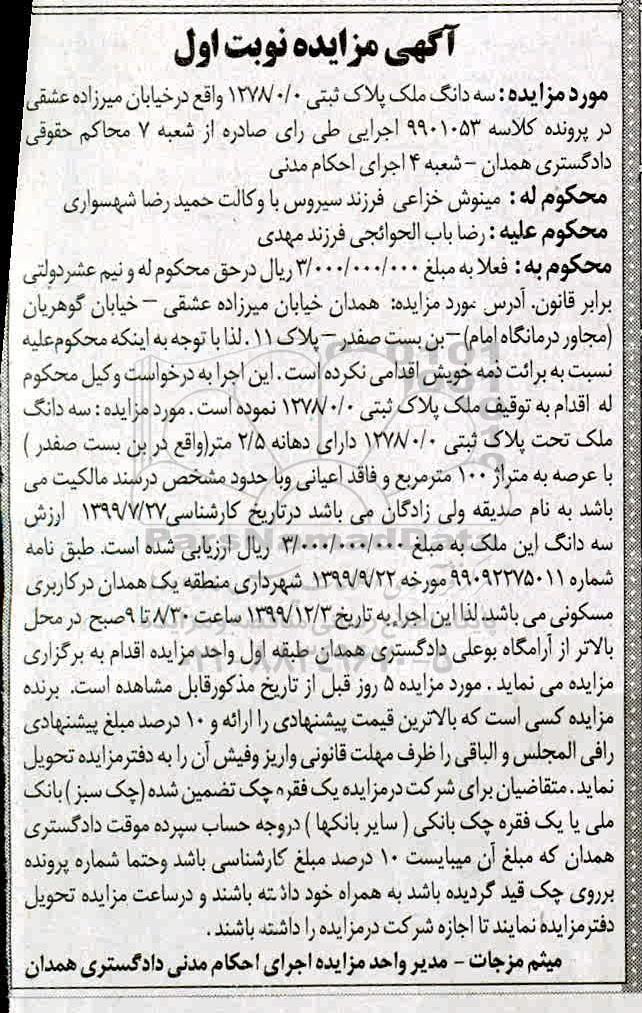 آگهی مزایده نوبت اول
مورد مزایده : سه دانگ ملک پلاک ثبتی ۱۲۷۸/۰/۰ واقع درخیابان میرزاده عشقی
در پرونده کلاسه ۹۹۰۱۰۵۳ اجرایی طی رای صادره از شعبه ۷ محاکم حقوقی
دادگستری همدان - شعبه ۴ اجرای احکام مدنی
محکوم له : مینوش خزاعی فرزند سیروس با وکالت حمید رضا شهسواری
محکوم علیه : رضا باب الحوائجی فرزند مهدی
محکوم به : فعلا به مبلغ ۳/۰۰۰/۰۰۰/۰۰۰ ریال درحق محکوم له و نیم عشردولتی
برابر قانون. آدرس مورد مزایده: همدان خیابان میرزاده عشقی – خیابان گوهریان
(مجاور درمانگاه امام) – بن بست صفدر – پلاک ۱۱ . لذا با توجه به اینکه محکوم علیه
نسبت به برائت ذمه خویش اقدامی نکرده است . این اجرا به درخواست وکیل محکوم
له اقدام به توقیف ملک پلاک ثبتی ۱۲۷۸/۰/۰ نموده است . مورد مزایده : سه دانگ
ملک تحت پلاک ثبتی ۱۲۷۸/۰/۰ دارای دهانه ۲/۵ متر(واقع در بن بست صفدر )
با عرصه به متراژ ۱۰۰ مترمربع و فاقد اعیانی وبا حدود مشخص درسند مالکیت می
باشد به نام صدیقه ولی زادگان می باشد درتاریخ کارشناسی ۱۳۹۹/۷/۲۷ ارزش
سه دانگ این ملک به مبلغ ۳/۰۰۰/۰۰۰/۰۰۰ ریال ارزیابی شده است. طبق نامه
شماره ۹۹۰۹۲۲۷۵۰۱۱ مورخه ۱۳۹۹/۹/۲۲ شهرداری منطقه یک همدان در کاربری
مسکونی می باشد. لذا این اجرا به تاریخ ۱۳۹۹/۱۲/۳ ساعت ۸/۳۰ تا ۹ صبح در محل
بالاتر از آرامگاه بوعلی دادگستری همدان طبقه اول واحد مزایده اقدام به برگزاری
مزایده می نماید . مورد مزایده ۵ روز قبل از تاریخ مذکورقابل مشاهده است. برنده
مزایده کسی است که بالاترین قیمت پیشنهادی را ارائه و ۱۰ درصد مبلغ پیشنهادی
رافی المجلس و الباقی را ظرف مهلت قانونی واریز وفیش آن را به دفترمزایده تحویل
نماید . متقاضیان برای شرکت درمزایده یک فقره چک تضمین شده (چک سبز ) بانک
ملی یا یک فقره چک بانکی ( سایر بانکها ) دروجه حساب سپرده موقت دادگستری
همدان که مبلغ آن میبایست ۱۰ درصد مبلغ کارشناسی باشد وحتما شماره پرونده
برروی چک قید گردیده باشد به همراه خود داشته باشند و درساعت مزایده تحویل
دفترمزایده نمایند تا اجازه شرکت درمزایده را داشته باشند .
میثم مزجات - مدیر واحد مزایده اجرای احکام مدنی دادگستری همدان
ParsNamadData